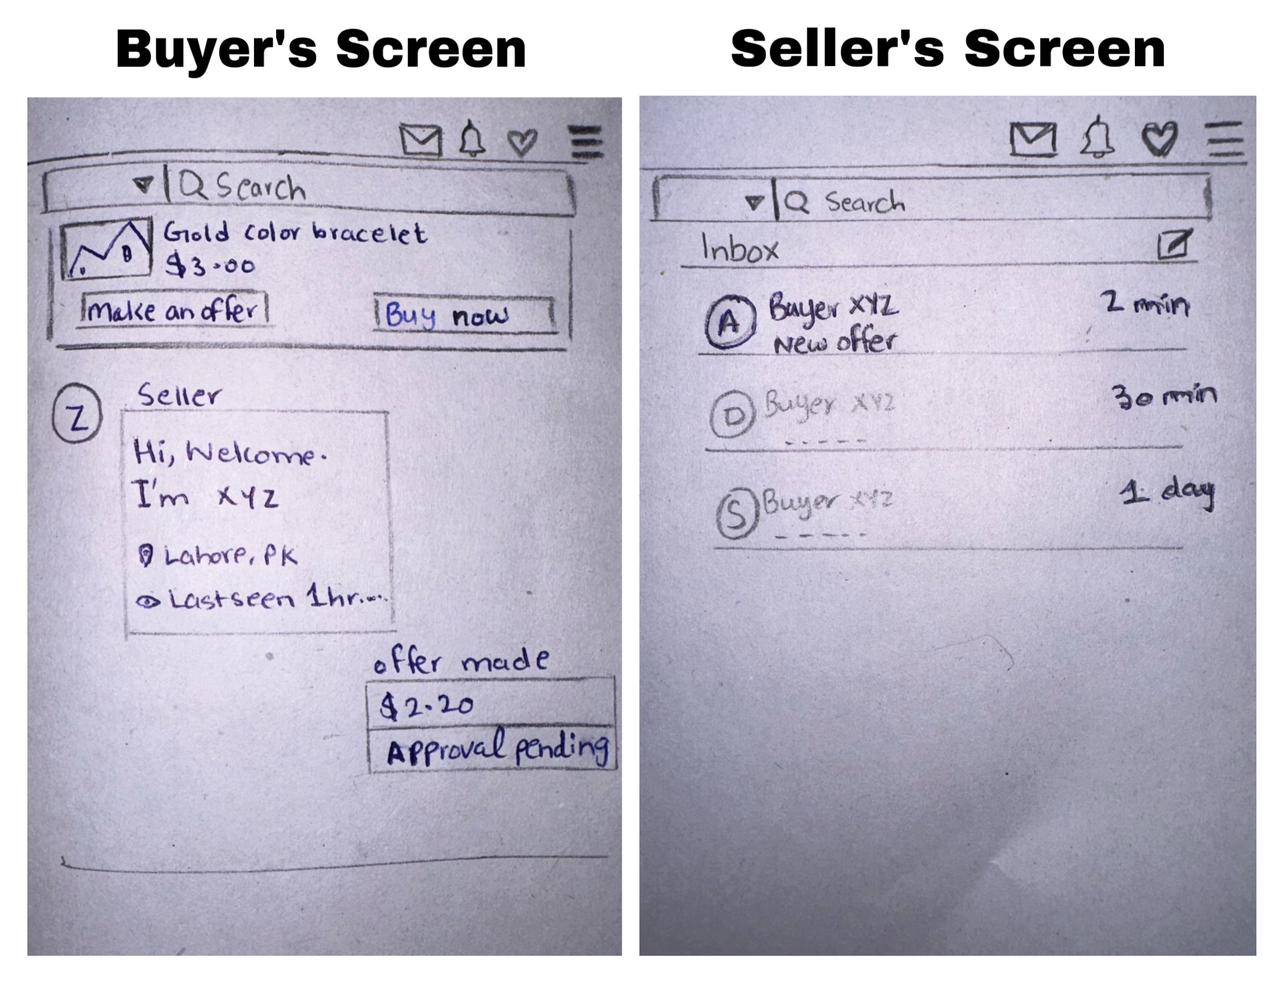 Buyer's Screen
Search
Gold color bracelet
$3.00
Make an offer
Buy now
Z
Seller
Hi, Welcome.
I'm XYZ
Lahore, PK
Last seen 1hr...
offer made
$2.20
Approval pending
Seller's Screen
Search
Inbox
A
Buyer XYZ
2 min
New offer
D
Buyer XYZ
30 min
S
Buyer XYZ
1 day